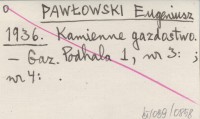 PAWŁOWSKI Eugeniusz
1936. Kamienne gazdostwo.
— Gaz. Podhala 1, nr 3: ;
nr 4: .